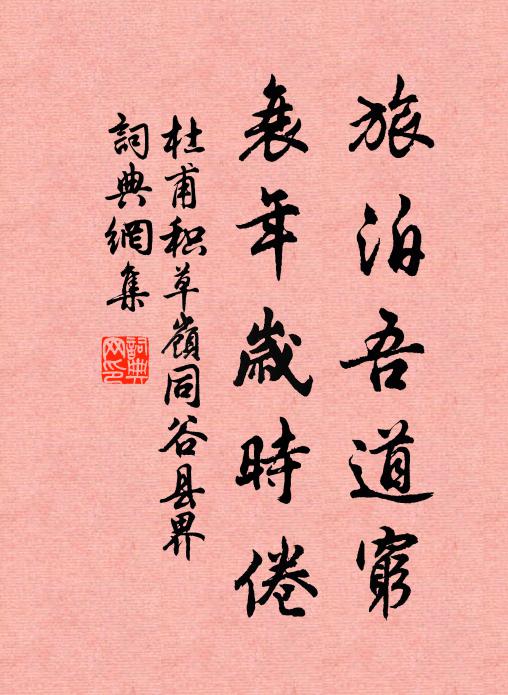 旅泊吾道窮
衰年歲時倦
杜甫积草嶺同谷县界
詞典網集
詞典網印